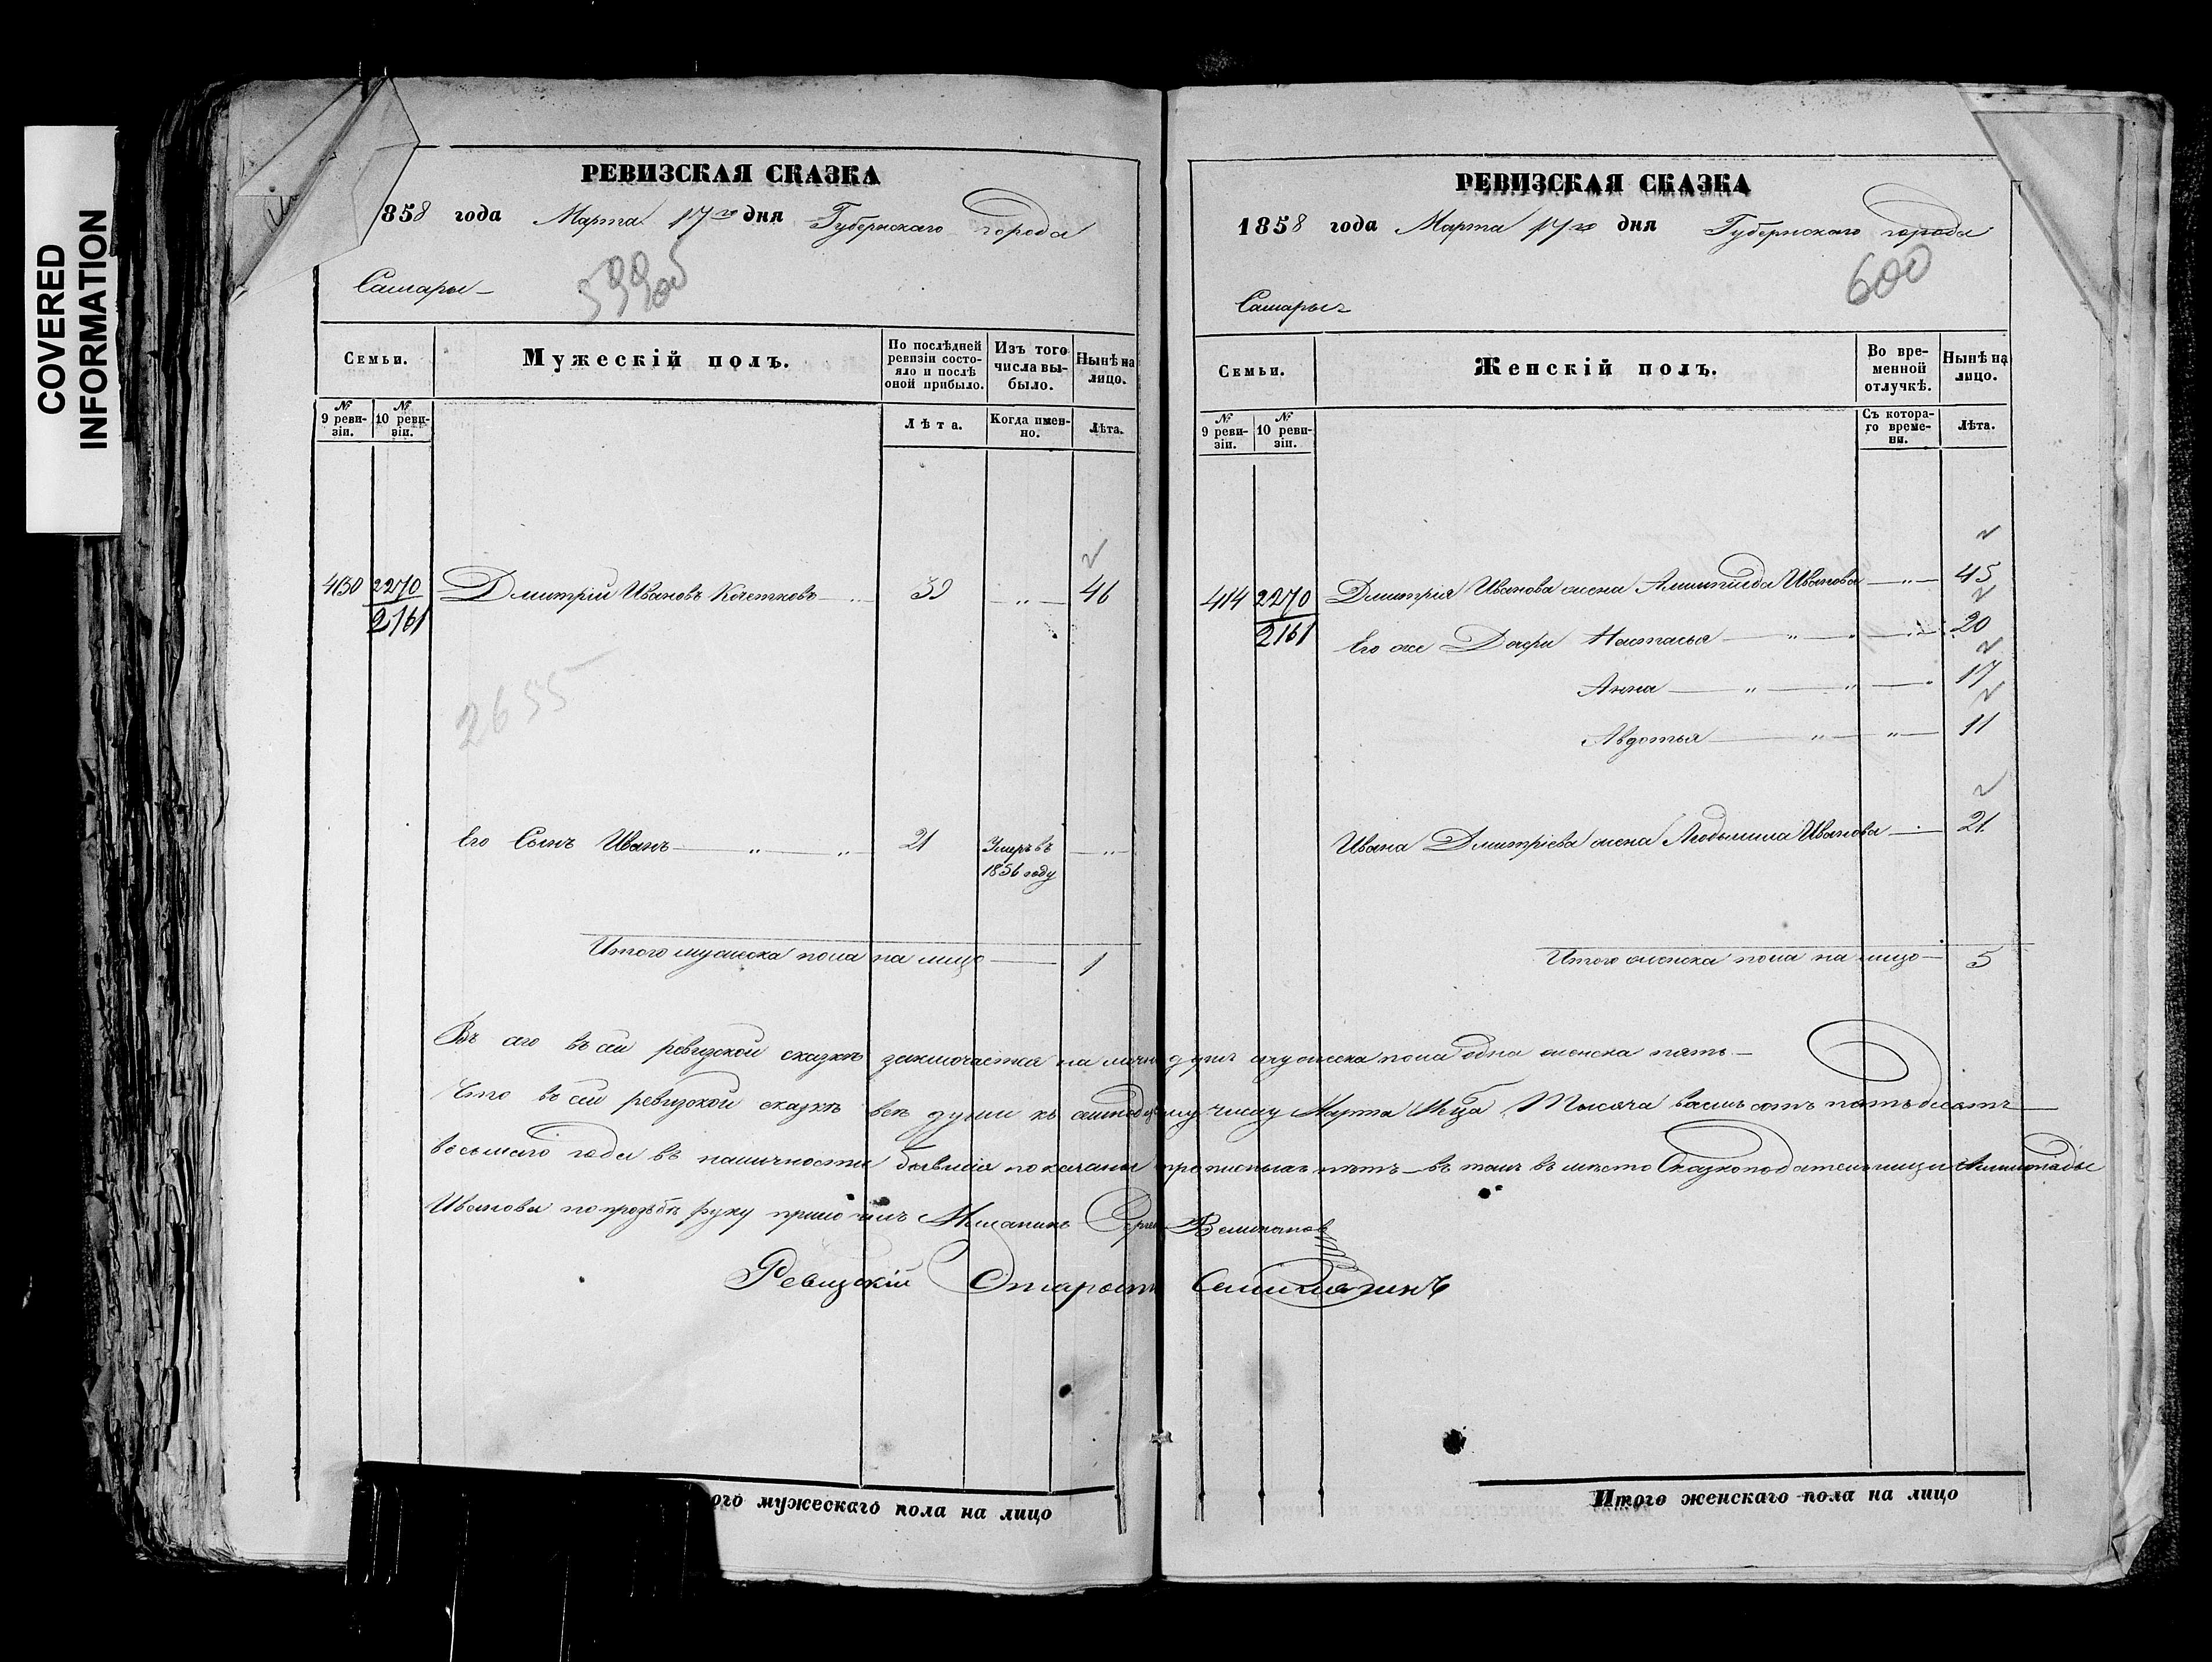 COVERED
INFORMATION
РЕВИЗСКАЯ СКАЗКА
858 года Марта 17го дня Губернскаго города
Самары
599об
Семьи.
Мужескій полъ.
По послѣдней
ревизіи состо-
яло и послѣ
оной прибыло.
Изъ того
числа вы-
было.
Нынѣ на
лицо.
№
9 реви-
зіи.
№
10 реви-
зіи.
Лѣта.
Когда имен-
но.
Лѣта.
430 2270 Дмитрій Ивановъ Кочетковъ 39 „ 46
2161
2655
Его Сынъ Иванъ „ „ 21 Умеръ въ „
1856 году
Итого мужеска пола на лицо 1
РЕВИЗСКАЯ СКАЗКА
1858 года Марта 17го дня Губернскаго города
600
Самары
Семьи.
Женскій полъ.
Во вре-
менной
отлучкѣ.
Нынѣ на
лицо.
№
9 реви-
зіи.
№
10 реви-
зіи.
Съ котора-
го време-
ни.
Лѣта.
414 2270 Дмитрія Иванова жена Иванова „ 45
2161 Его же Дочери Настасья „ „ 20
Анна „ „ „ 17
Авдотья „ „ 11
Ивана Дмитріева жена Людьмила Иванова 21
Итого женска пола на лицо 5
въ сей ревизской сказкѣ заключается на лицо душъ мужеска пола одна женска пять
Что въ сей ревизской сказкѣ всѣ души къ му числу Марта Мца Тысяча восемь сотъ пятьдесятъ
восьмаго года въ наличности бывшія показаны прописныхъ нѣтъ въ томъ вмѣсто Сказкоподательницы
Ивановы по прозьбѣ руку приложилъ Мѣщанинъ Великановъ
Ревизскій Староста
ого мужескаго пола на лицо
Итого женскаго пола на лицо